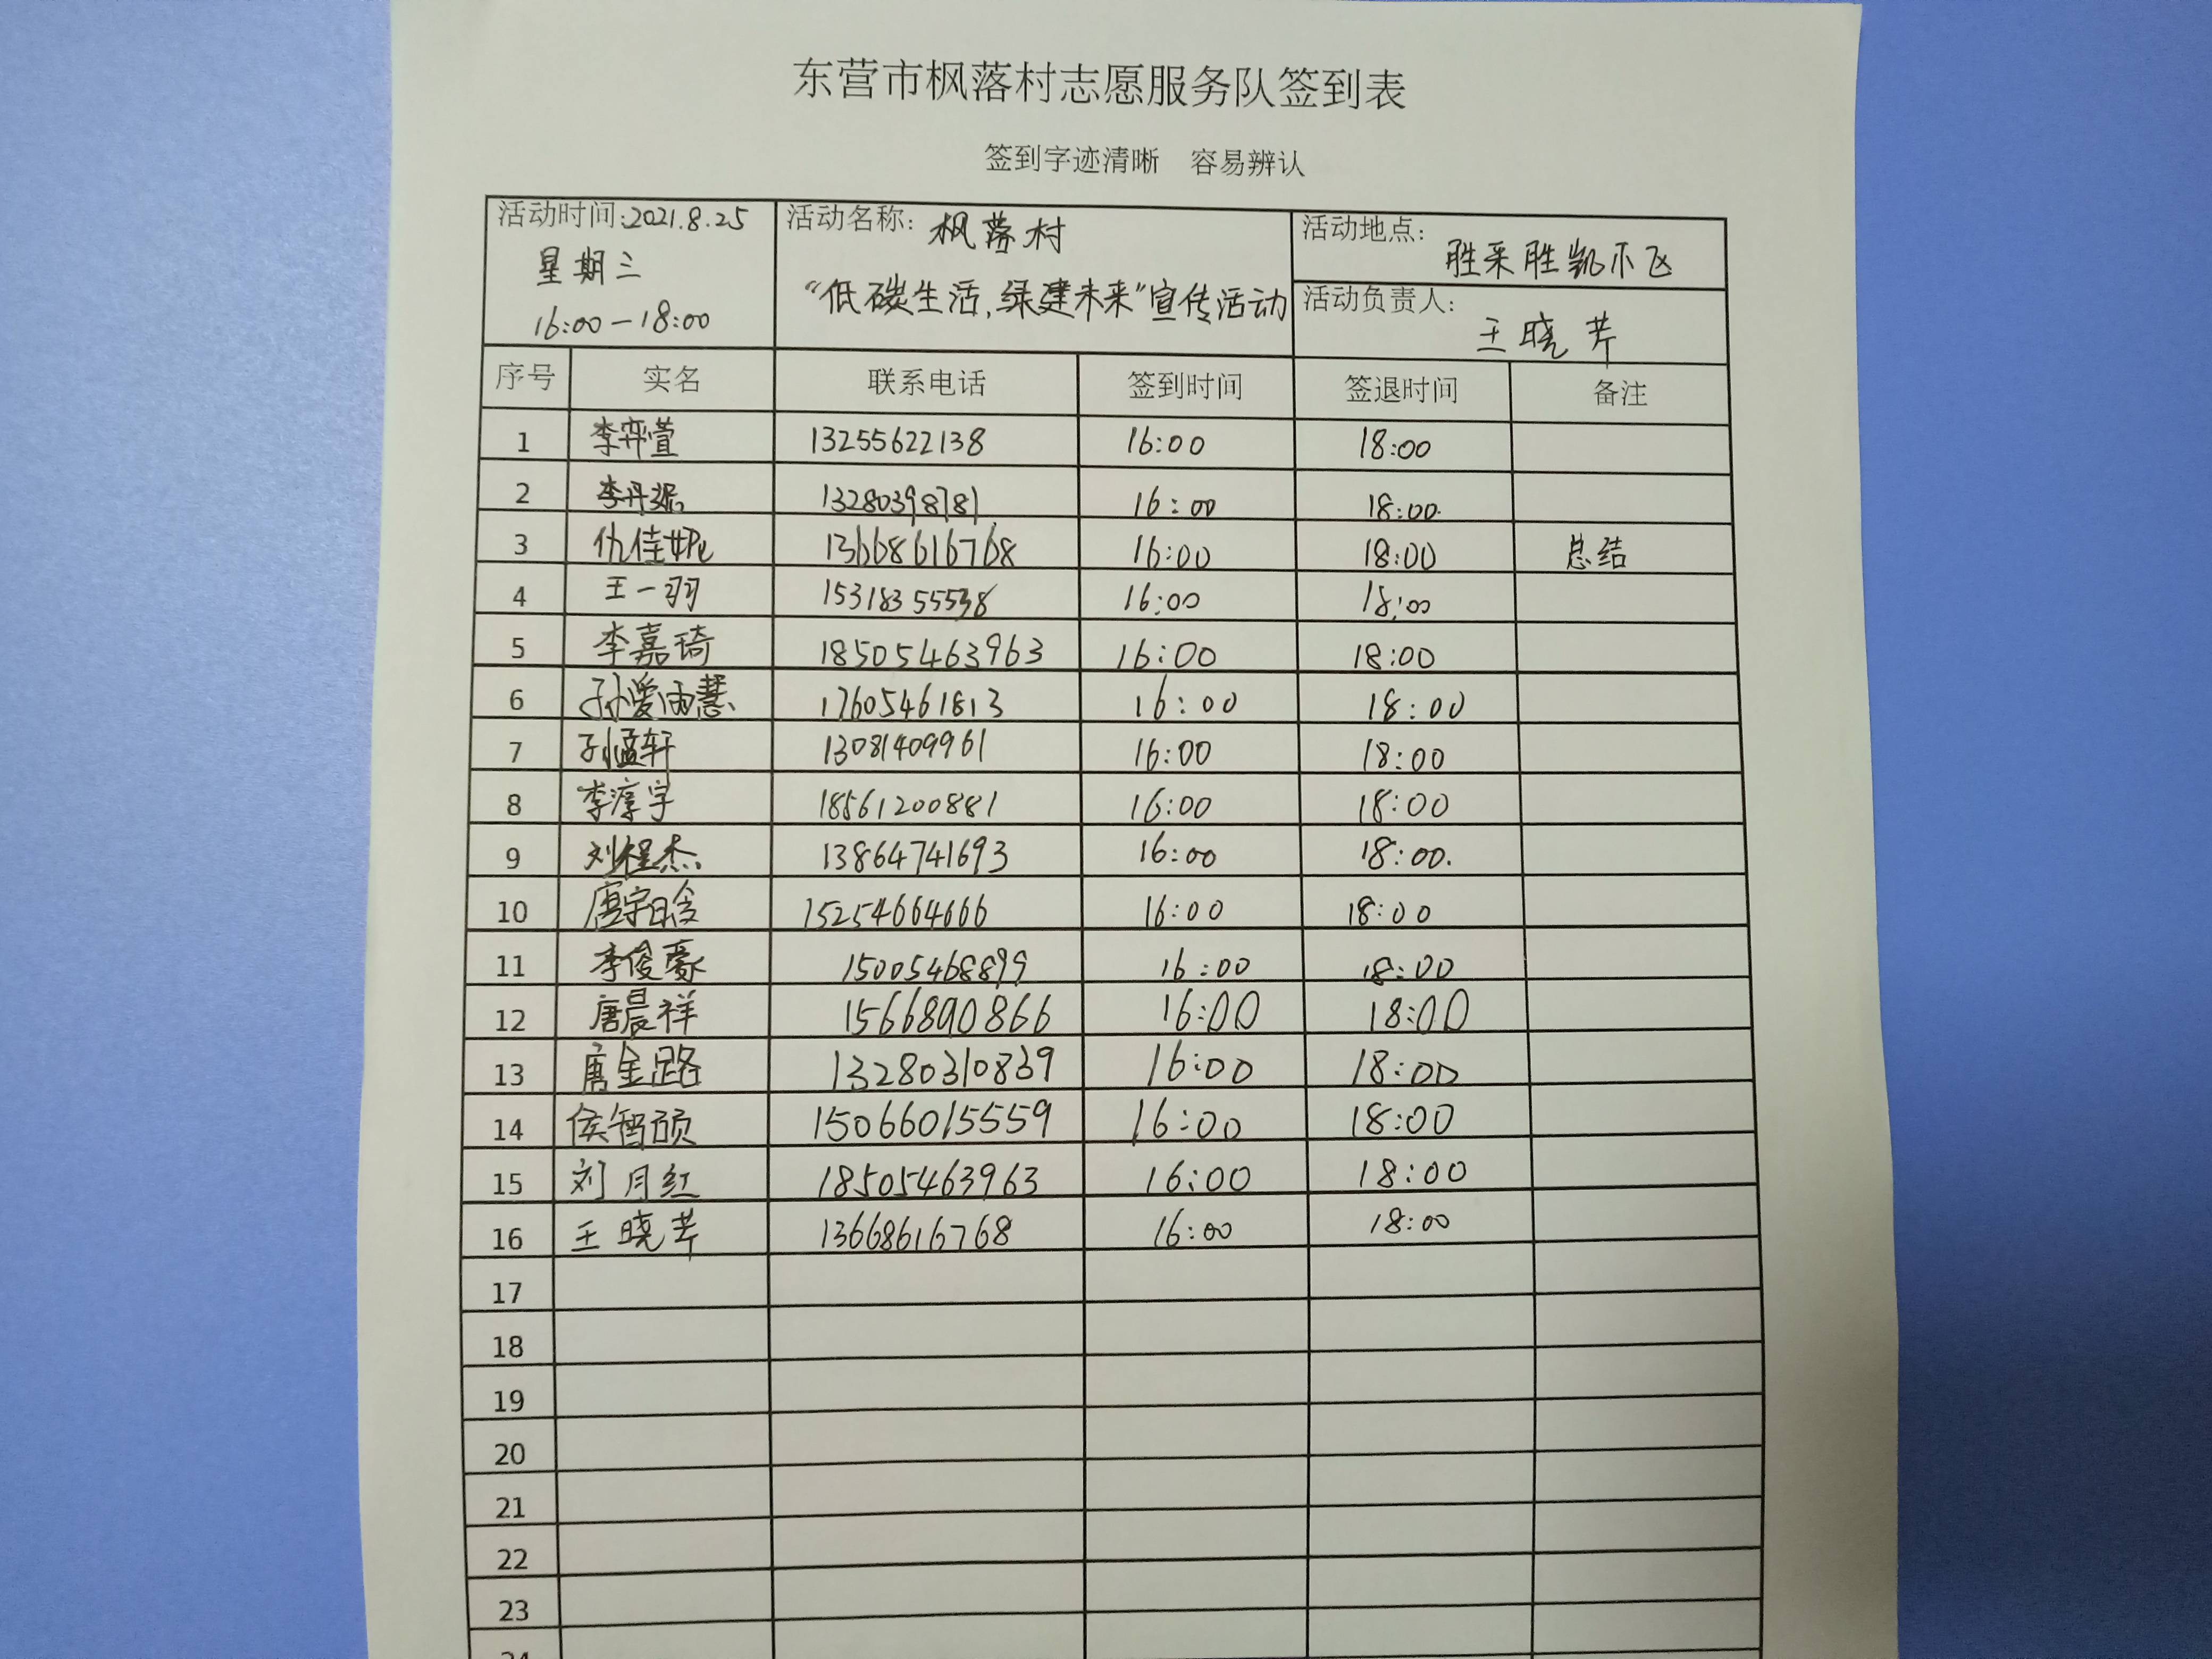 东营市枫落村志愿服务队签到表
签到字迹清晰 容易辨认
活动时间:2021.8.25 星期三 16:00—18:00
活动名称: 枫落村 "低碳生活,绿建未来"宣传活动
活动地点: 胜采胜凯小区
活动负责人: 王晓芹
序号 实名 联系电话 签到时间 签退时间 备注
1 李弈萱 13255622138 16:00 18:00
2 李丹妮 13280398781 16:00 18:00.
3 仇佳妮 13668616768 16:00 18:00 总结
4 王一羽 15318355538 16:00 18:00
5 李嘉琦 18505463963 16:00 18:00
6 孙爱雨慧 17605461813 16:00 18:00
7 孙孟轩 13081409961 16:00 18:00
8 李淳宇 18561200881 16:00 18:00
9 刘程杰 13864741693 16:00 18:00.
10 唐宇晗 15254664666 16:00 18:00
11 李俊豪 15005468899 16:00 18:00
12 唐晨祥 1566890866 16:00 18:00
13 唐金路 13280310839 16:00 18:00
14 侯智硕 15066015559 16:00 18:00
15 刘月红 18505463963 16:00 18:00
16 王晓芹 13668616768 16:00 18:00
17
18
19
20
21
22
23